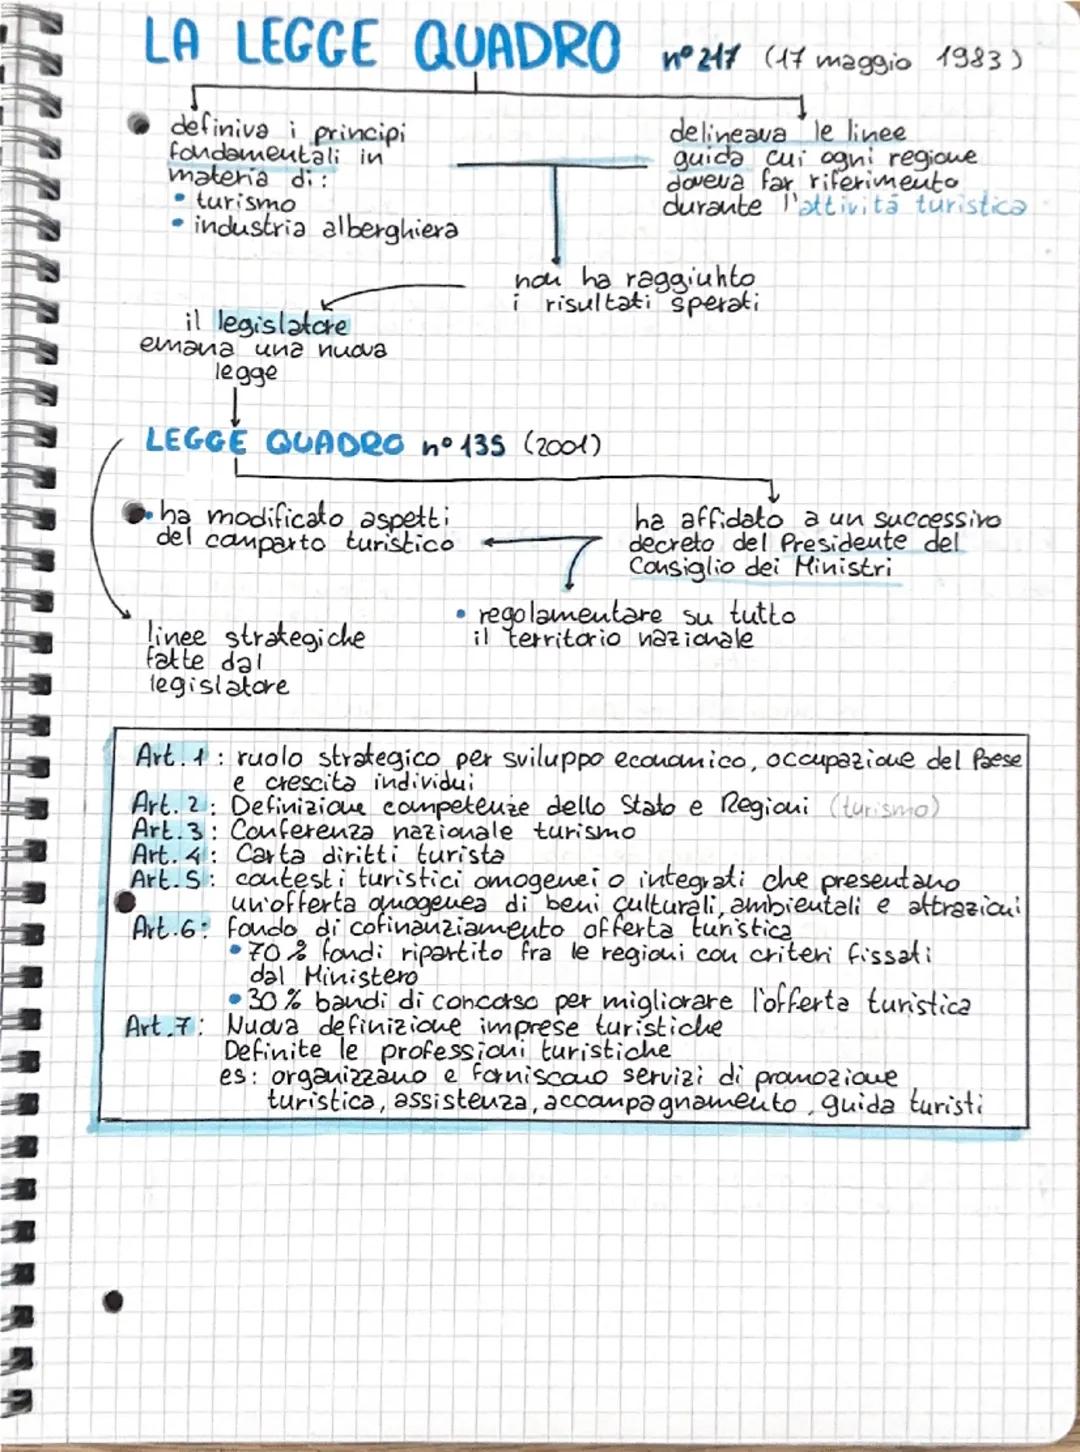 LA LEGGE QUADRO n° 217 (17 maggio 1983)
definiva i principi
fondamentali in
materia di:
• turismo
• industria alberghiera
delineava le linee
guida cui ogni regione
doveva far riferimento
durante l'attivitá turistica
non ha raggiunto
i risultati sperati
il legislatore
emana una nuova
legge
LEGGE QUADRO n° 135 (2001)
• ha modificato aspetti
del comparto turistico
ha affidato a un successivo
decreto del Presidente del
Consiglio dei Ministri
• regolamentare su tutto
il territorio nazionale
linee strategiche
fatte dal
legislatore
Art. 1: ruolo strategico per sviluppo economico, occupazione del Paese
e crescita individui
Art. 2: Definizione competenze dello Stato e Regioni (turismo)
Art. 3: Conferenza nazionale turismo
Art. 4: Carta diritti turista
Art. 5: contesti turistici omogenei o integrati che presentano
un'offerta omogenea di beni culturali, ambientali e attrazioni
Art. 6: fondo di cofinanziamento offerta turistica
• 70% fondi ripartito fra le regioni con criteri fissati
dal Ministero
• 30% bandi di concorso per migliorare l'offerta turistica
Art. 7: Nuova definizione imprese turistiche
Definite le professioni turistiche
es: organizzano e forniscono servizi di promozione
turistica, assistenza, accompagnamento, guida turisti